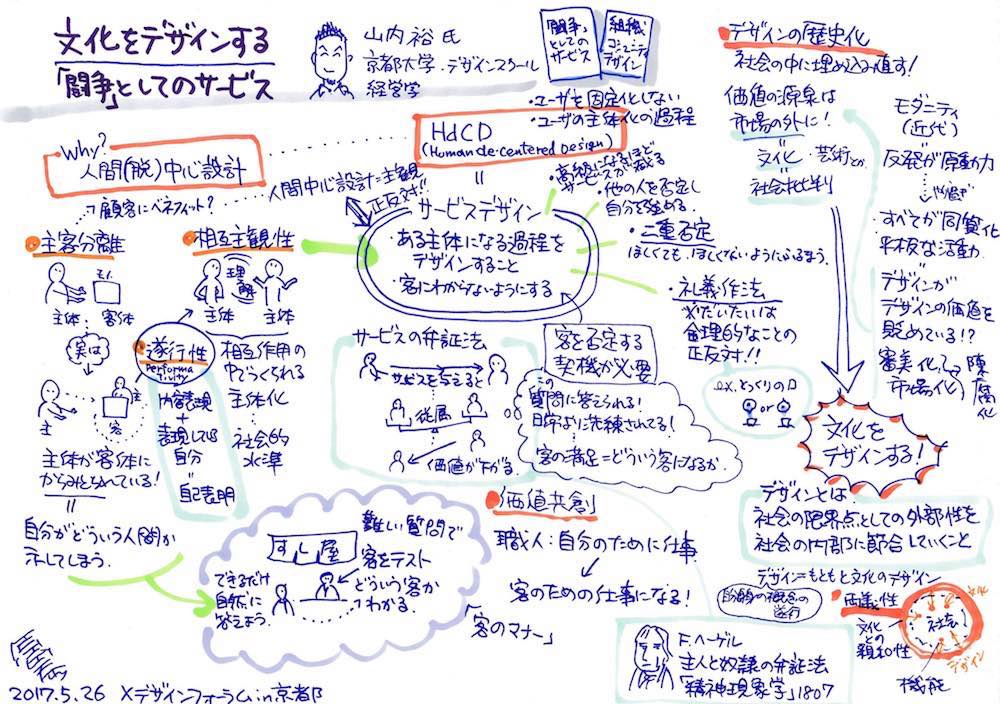 文化をデザインする
「闘争」としてのサービス
山内裕氏
京都大学・デザインスクール
経営学
「闘争」
としての
サービス
組織
コミュニティ
デザイン
・ユーザを固定化しない
・ユーザの主体化の過程
HdCD
(Human de-centered Design)
||
Why?
人間(脱)中心設計
人間中心設計=主観
正反対!!
顧客にベネフィット?
主客分離
モノ
主体：客体
実は
主
主
客
主体が客体に
からめとられている!
||
自分がどういう人間か
示してしまう。
相互主観性
理解
主体 主体
遂行性
Performativity
内容表現
+
表現している
自分
自己表明
相互作用の
中でつくられる
主体化
社会的
水準
サービスデザイン
・ある主体になる過程を
デザインすること
・客にわからないようにする
・高級になるほど
サービスが減る
・他の人を否定し
自分を強める。
・二重否定
ほしくても、ほしくないようにふるまう。
・礼義作法
※だいたいは
倫理的なことの
正反対!!
ex. とっくりの口
or
サービスの弁証法
サービスを与えると
従属
価値が下がる。
客を否定する
契機が必要
この
質問に答えられる!
日常より洗練されてる!
客の満足=どういう客になるか
すし屋
難しい質問で
客をテスト
どういう客か
わかる。
できるだけ
自然に
答えよう。
「客のマナー」
価値共創
職人：自分のために仕事
客のための仕事になる!
F.ヘーゲル
主人と奴隷の弁証法
「精神現象学」1807
デザインの歴史化
社会の中に埋め込み直す!
価値の源泉は
市場の外に!
文化・芸術とか
社会批判
モダニティ
(近代)
反発が原動力
・すべてが同質化
平板な活動
・デザインが
デザインの価値を
貶めている!?
審美化
市場化
陳腐化
文化を
デザインする!
デザインとは、
社会の限界点としての外部性を
社会の内部に節合していくこと
デザイン=もともと文化のデザイン
の概念の
遂行
両義性
文化
との
親和性
社会
文化
デザイン
機能
2017.5.26 Xデザインフォーラム in 京都